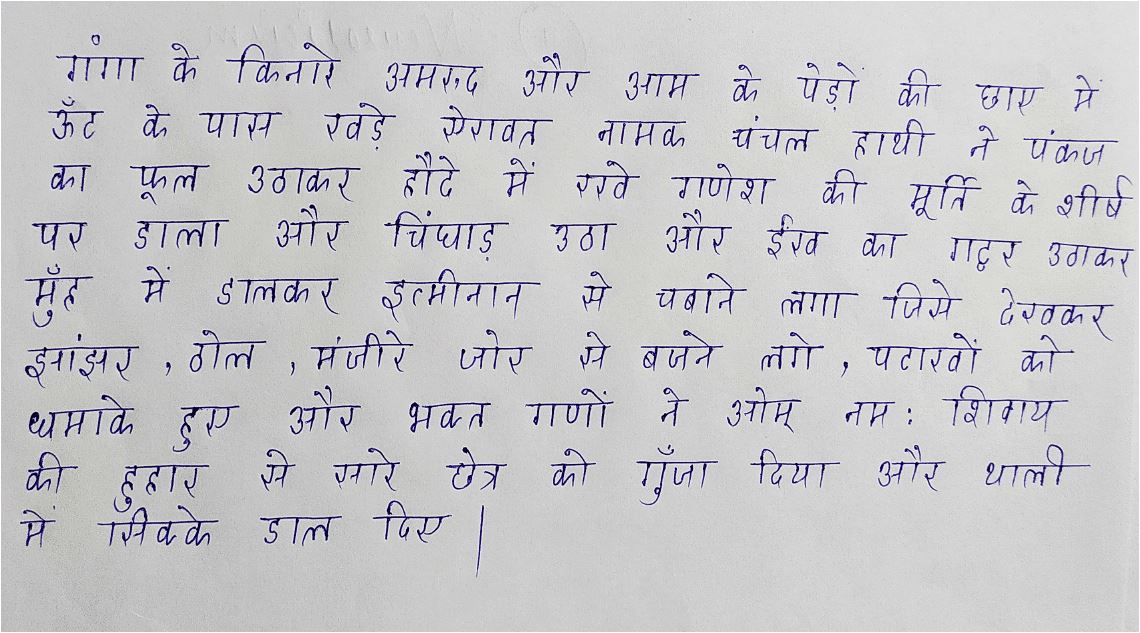 गंगा के किनारे अमरुद और आम के पेड़ों की छाए में
ऊँट के पास खड़े ऐरावत नामक चंचल हाथी ने पंकज
का फूल उठाकर हौदे में रखे गणेश की मूर्ति के शीर्ष
पर डाला और चिंघाड़ उठा और ईख का गट्ठर उठाकर
मुँह में डालकर इत्मीनान से चबाने लगा जिसे देखकर
झांझर , ढोल , मंजीरे जोर से बजने लगे , पटाखों को
धमाके हुए और भक्त गणों ने ओम् नमः शिवाय
की हुहार से सारे छेत्र को गुँजा दिया और थाली
में सिक्के डाल दिए |